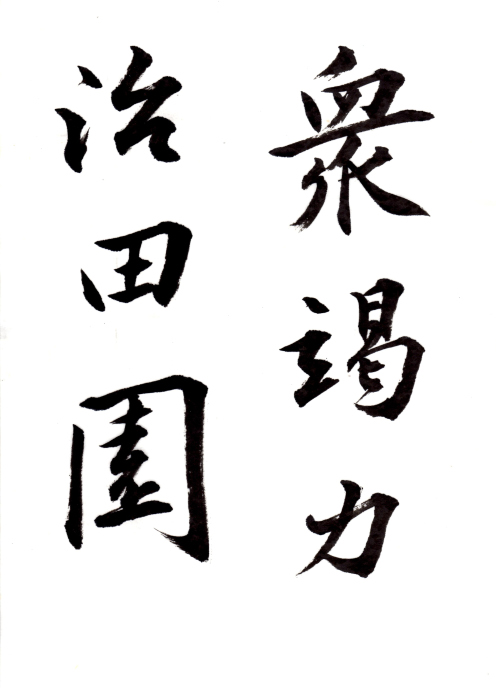 衆竭力
治田園